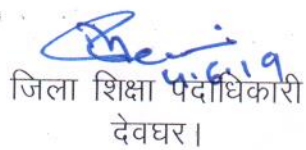 4.6.19
जिला शिक्षा पदाधिकारी
देवघर।